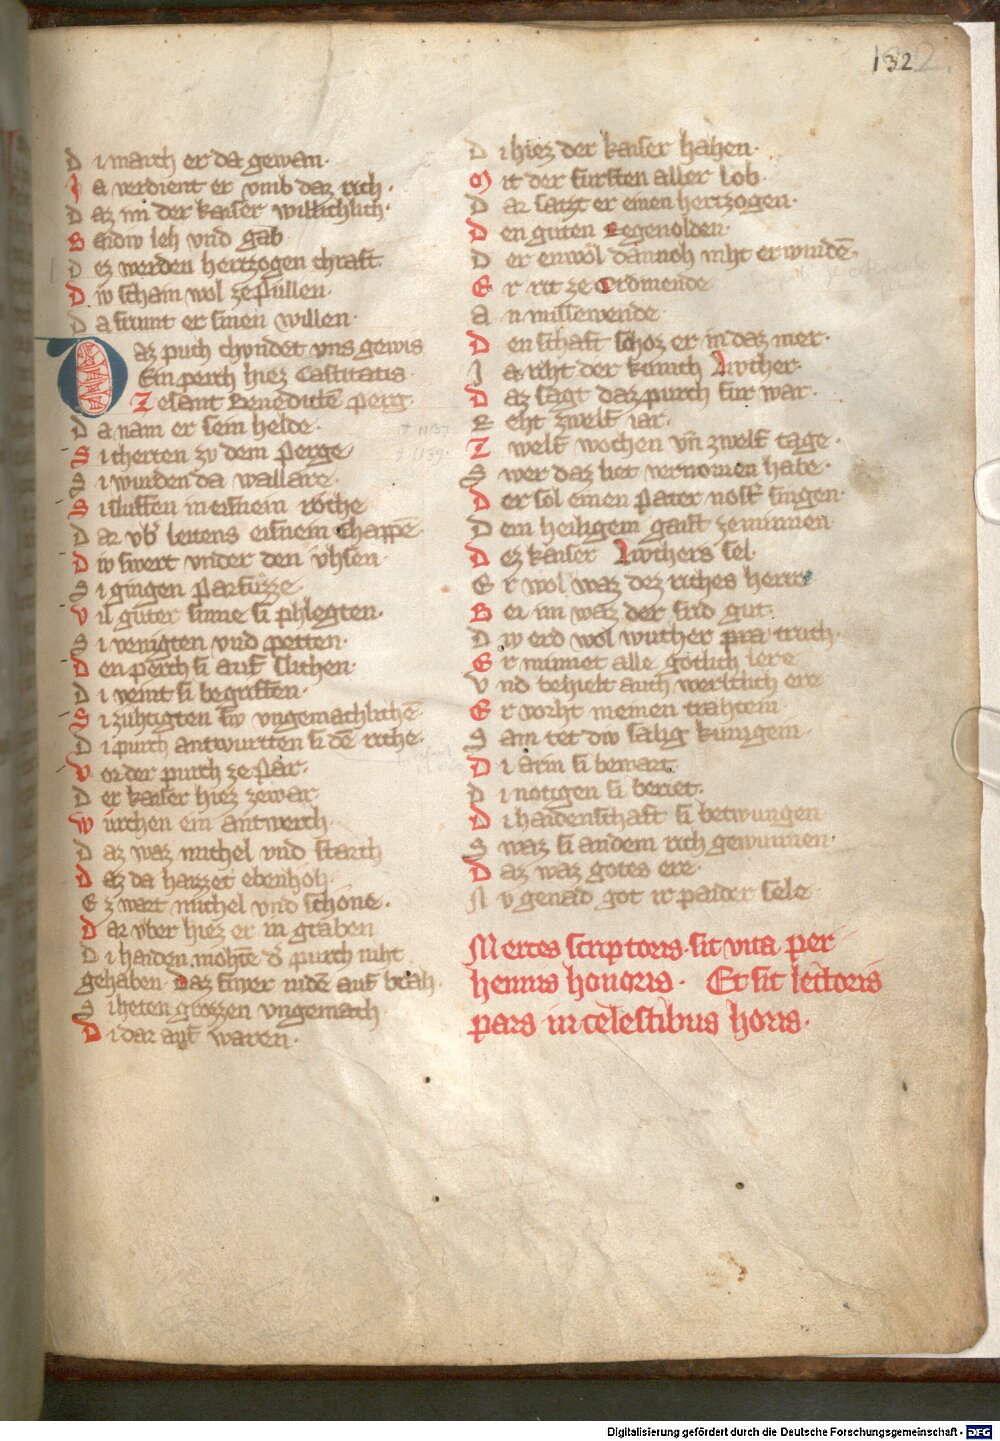 132
Di march er da gewan·
Ja verdient er vmb daz rich·
Daz im der kaiser willichlich·
Baidiv leh vnd gab
Dez werden hertzogen chraft·
Div scham wol zefullen·
Da frumt er sinen willen·
Daz puch chvndet vns gewis
Ein perch hiez Castitatis·
Zesant Benedicten perg
Da nam er sein helde·
Si cherten zv dem perge
Si wurden da wallare·
Si sluffen in eisnein röche
Dar vb' leitens eisnein chappē·
Div swert vnder den vhsen·
Si gingen parfuzze·
Vil guter sinne si phlegten·
Si venigten vnd petten·
Den perch si auf sluhen·
Di veint si begriffen·
Si zuhtigten siv vngemachlichē
Di purch antwurtten si dē riche·
Vor der purch ze par·
Der kaiser hiez zewar
Wurchen ein antwerch·
Daz waz michel vnd starch
Daz da haizzet ebenhoh·
Ez wart michel vnd schone·
Dar vber hiez er in graben
Di haiden mohtē d' purch niht
gehaben· Daz fiwer nidē auf brah·
Si heten grozzen vngemach
Di dar auf waren·
Di hiez der kaiser hahen·
Mit der fursten aller lob·
Dar satzt er einen hertzogen·
Den guten Regenolden·
Der enwöl dannoh niht erwindē·
Er rit ze Ordinende
An missewende·
Den schaft schoz er in daz mer·
Ja riht der kunich Livther·
Daz sagt daz purch fur war·
Reht zwelf iar·
Zwelf wochen vñ zwelf tage·
Swer daz liet vernomen habe·
Der sol einen Pater nost' singen·
Dem heiligem gaist zeminnen·
Dez kaiser Livthers sel·
Er wol waz dez riches herre
Bei im waz der frid gut·
Div erd wol wucher pra truch·
Er minnet alle gotlich lere
Vnd behielt auch werltlich ere
Er vorht meinen trahtein·
Sam tet div sælig kunigein·
Di arm si bewart·
Di notigen si beriet·
Di haidenschaft si betwungen
Swaz si andern rich gewunnen·
Daz waz gotes ere·
Nv genad got ir paider sele·
Mertes scriptoris sit vita per
hennis honoris· Et sit lectoris
pars in celestibus horis·
Digitalisierung gefördert durch die Deutsche Forschungsgemeinschaft - DFG